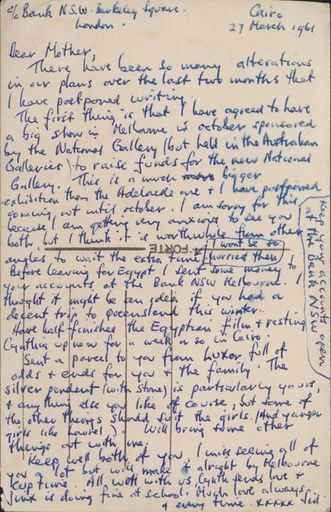 c/o Bank N.S.W. Berkeley Square.
London.
Cairo
27 March 1961
Dear Mother,
There have been so many alterations
in our plans over the last two months that
I have postponed writing
The first thing is that I have agreed to have
a big show in Melbourne in October sponsored
by the National Gallery (but held in the Australian
Galleries) to raise funds for the new National
Gallery. This is a much bigger
exhibition than the Adelaide one & I have postponed
coming out until October. I am sorry for this
because I am getting very anxious to see you
both but I think it is worthwhile from other
angles to wait the extra time. I wont be so
hurried then
Before leaving for Egypt I sent some money to
your accounts at the Bank NSW Melbourne. I
thought it might be an idea if you had a
decent trip to Queensland this winter.
Have half-finished the Egyptian film & resting
Cynthia up now for a week or so in Cairo.
Sent a parcel to you from Luxor full of
odds & ends for you & the family. The
silver pendent (with stone) is particularly yours,
& anything else you like of course, but some of
the other things should suit the girls. (And younger
girls like Laurel) Will bring some other
things out with me.
Keep well both of you, I miss seeing all of
you a lot but will make it alright by Melbourne
Cup time. All well with us, Cynth sends love &
Jinx is doing fine at school. Much love always,
xxxxx Sid.
Keep your accounts open
at the Bank NSW
FORTE